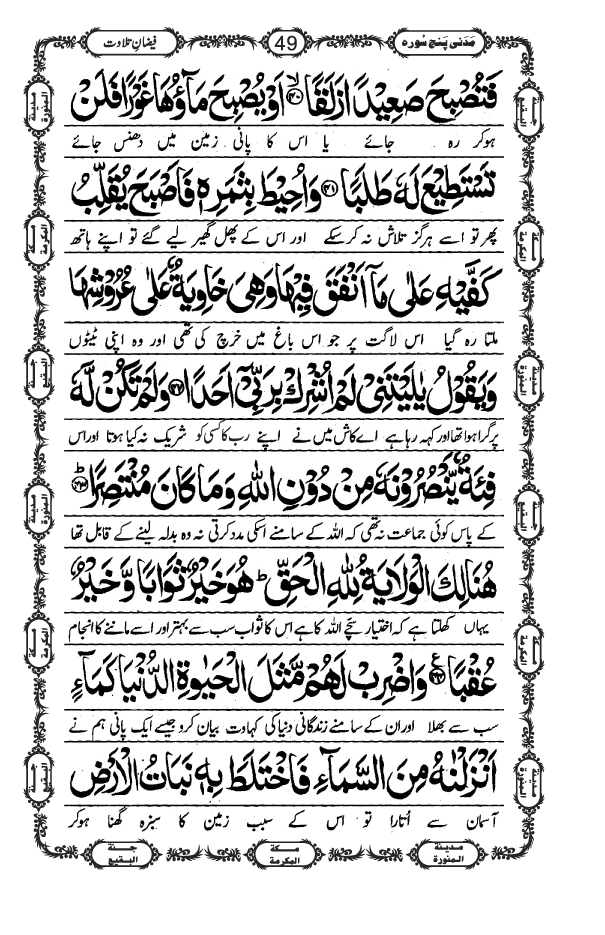 مَدَنی پنج سُورہ
49
فیضانِ تلاوت
فَتُصْبِحَ صَعِیْدًا زَلَقًا ﴿ۙ۴۰﴾ اَوْ یُصْبِحَ مَآؤُہَا غَوْرًا فَلَنْ
ہوکر رہ جائے یا اس کا پانی زمین میں دھنس جائے
تَسْتَطِیْعَ لَہٗ طَلَبًا ﴿۴۱﴾ وَ اُحِیْطَ بِثَمَرِہٖ فَاَصْبَحَ یُقَلِّبُ
پھر تو اسے ہرگز تلاش نہ کرسکے اور اس کے پھل گھیر لیے گئے تو اپنے ہاتھ
کَفَّیْہِ عَلٰی مَاۤ اَنْفَقَ فِیْہَا وَہِیَ خَاوِیَۃٌ عَلٰی عُرُوْشِہَا
ملتا رہ گیا اس لاگت پر جو اس باغ میں خرچ کی تھی اور وہ اپنی ٹیٹوں
وَیَقُوْلُ یٰلَیْتَنِیْ لَمْ اُشْرِکْ بِرَبِّیْۤ اَحَدًا ﴿۴۲﴾ وَلَمْ تَکُنْ لَّہٗ
پر گرا ہوا تھا اور کہہ رہا ہے اے کاش میں نے اپنے رب کا کسی کو شریک نہ کیا ہوتا اور اس
فِئَۃٌ یَّنْصُرُوْنَہٗ مِنْ دُوْنِ اللہِ وَمَا کَانَ مُنْتَصِرًا ﴿ؕ۴۳﴾
کے پاس کوئی جماعت نہ تھی کہ اللہ کے سامنے اسکی مدد کرتی نہ وہ بدلہ لینے کے قابل تھا
ہُنَالِکَ الْوَلَایَۃُ لِلہِ الْحَقِّ ؕ ہُوَ خَیْرٌ ثَوَابًا وَّ خَیْرٌ
یہاں کھلتا ہے کہ اختیار سچّے اللہ کا ہے اس کا ثواب سب سے بہتر اور اسے ماننے کا انجام
عُقْبًا ﴿۴۴﴾ ع وَاضْرِبْ لَہُمْ مَّثَلَ الْحَیٰوۃِ الدُّنْیَا کَمَآءٍ
سب سے بھلا اور ان کے سامنے زندگانی دنیا کی کہاوت بیان کرو جیسے ایک پانی ہم نے
اَنْزَلْنٰہُ مِنَ السَّمَآءِ فَاخْتَلَطَ بِہٖ نَبَاتُ الْاَرْضِ
آسمان سے اُتارا تو اس کے سبب زمین کا سبزہ گھنا ہوکر
مدینۃ المنورۃ
مکۃ المکرمۃ
جنۃ البقیع